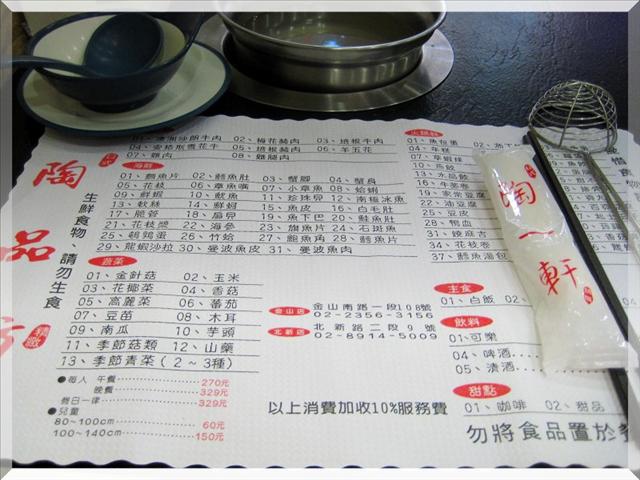 陶
品
精緻
生鮮食物、請勿生食
02、梅花豬肉
07、雞肉
08、雞腿肉
06、羊五花
海鮮
01、鯛魚片 02、鱈魚肚 03、蟹腳 04、蟹身
05、花枝 06、章魚嘴 07、小章魚 08、蛤蜊
09、鮮蝦 10、魷魚 11、珍珠貝 12、南極冰魚
13、軟絲 14、鮮蚵 15、魚皮 16、白毛肚
17、脆管 18、扇貝 19、魚下巴 20、鮭魚肚
21、花枝漿 22、海參 23、旗魚片 24、石斑魚
25、鵪鶉蛋 26、竹蛤 27、鮑魚角 28、鱈魚片
29、龍蝦沙拉 30、曼波魚皮 31、曼波魚肉
蔬菜
01、金針菇 02、玉米
03、花椰菜 04、香菇
05、高麗菜 06、蕃茄
07、豆苗 08、木耳
09、南瓜 10、芋頭
11、季節菇類 12、山藥
13、季節青菜(2~3種)
●每人 午餐 270元
晚餐 329元
假日一律 329元
●兒童
80~100cm 60元
100~140cm 150元
金山店 金山南路一段108號
02-2356-3156
北新店 北新路二段9號
02-8914-5009
以上消費加收10%服務費
火鍋料
01、魚包蛋
10、燕餃
13、水晶餃
19、家常豆腐
22、油豆腐
25、豆皮
28、鴨血
31、辣麻吉
34、花枝卷
37、鱈魚湯包
主食
01、白飯
飲料
01、可樂
04、啤酒
05、清酒
甜點
01、咖啡 02、甜品
勿將食品置於
陶一軒
惜